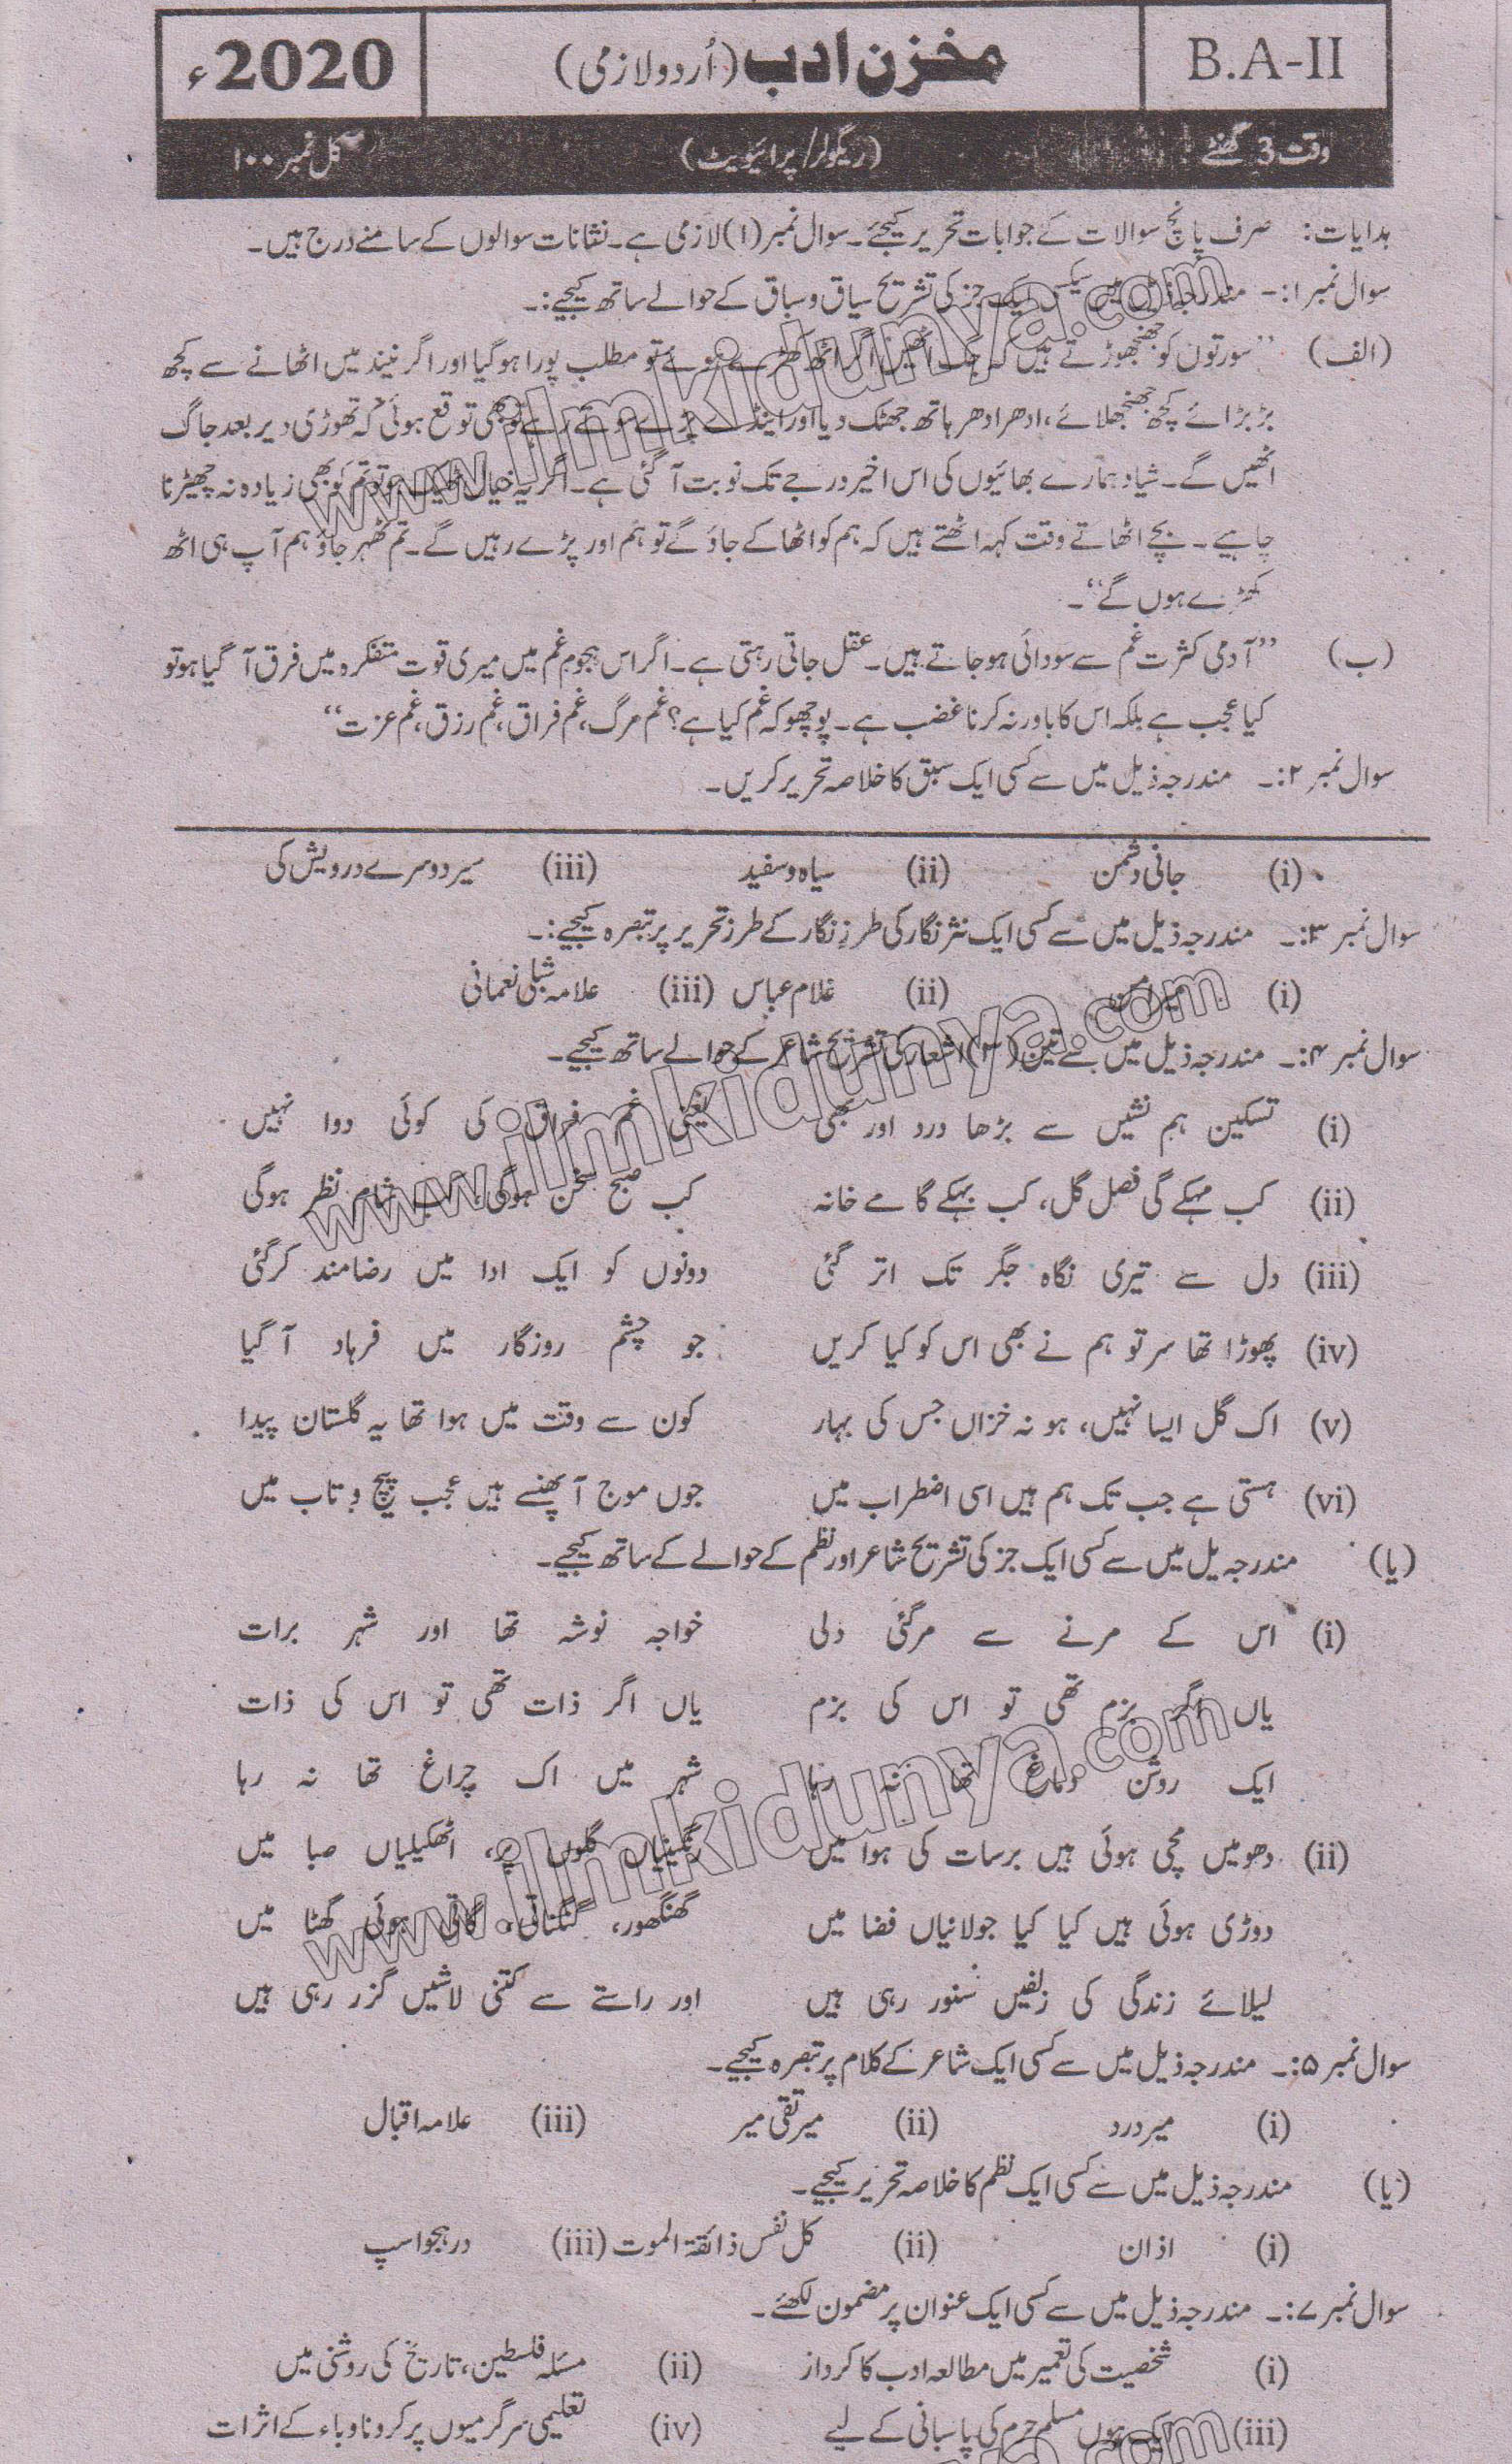 B.A-II
مخزن ادب (اُردو لازمی)
2020ء
وقت 3 گھنٹے
(ریگولر/پرائیویٹ)
کل نمبر ۱۰۰
ہدایات: صرف پانچ سوالات کے جوابات تحریر کیجئے۔ سوال نمبر (۱) لازمی ہے۔ نقانات سوالوں کے سامنے درج ہیں۔
سوال نمبر ۱:- مندرجہ ذیل میں سے کسی ایک جز کی تشریح سیاق و سباق کے حوالے ساتھ کیجیے:۔
(الف) ’’سورتوں کو جھنجھوڑتے ہیں کہ جگ اٹھیں اگر اٹھ کھڑے ہوئے تو مطلب پورا ہوگیا اور اگر نیند میں اٹھانے سے کچھ
بڑبڑائے کچھ جھنجھلائے، ادھر ادھر ہاتھ جھٹک دیا اور اینڈے پڑے سوتے رہے تو بھی توقع ہوئی کہ تھوڑی دیر بعد جاگ
اٹھیں گے۔ شیاد ہمارے بھائیوں کی اس اخیر درجے تک نوبت آگئی ہے۔ اگر یہ خیال ٹھیک ہو تو تم کو بھی زیادہ نہ چھیڑنا
چاہیے۔ بچے اٹھاتے وقت کہہ اٹھتے ہیں کہ ہم کو اٹھا کے جاؤ گے تو ہم اور پڑے رہیں گے۔ تم ٹھہر جاؤ ہم آپ ہی اٹھ
کھڑے ہوں گے‘‘۔
(ب) ’’آدمی کثرت غم سے سودائی ہو جاتے ہیں۔ عقل جاتی رہتی ہے۔ اگر اس ہجوم غم میں میری قوت متفکرہ میں فرق آ گیا ہو تو
کیا عجب ہے بلکہ اس کا باور نہ کرنا غضب ہے۔ پوچھو کہ غم کیا ہے؟ غم مرگ، غم فراق، غم رزق، غم عزت‘‘
سوال نمبر ۲:۔ مندرجہ ذیل میں سے کسی ایک سبق کا خلاصہ تحریر کریں۔
(i) جانی دشمن (ii) سیاہ و سفید (iii) سیر دوسرے درویش کی
سوال نمبر ۳:۔ مندرجہ ذیل میں سے کسی ایک نثر نگار کی طرزِ نگار کے طرز تحریر پر تبصرہ کیجیے:۔
(i) میر امن (ii) غلام عباس (iii) علامہ شبلی نعمانی
سوال نمبر ۴:۔ مندرجہ ذیل میں سے تین (۳) اشعار کی تشریح شاعر کے حوالے ساتھ کیجیے۔
(i) تسکین ہم نشیں سے بڑھا درد اور بھی یعنی غم فراق کی کوئی دوا نہیں
(ii) کب مہکے گی فصل گل، کب بہکے گا مے خانہ کب صبح سخن ہوگی، کب شام نظر ہوگی
(iii) دل سے تیری نگاہ جگر تک اتر گئی دونوں کو ایک ادا میں رضامند کرگئی
(iv) پھوڑا تھا سر تو ہم نے بھی اس کو کیا کریں جو چشم روزگار میں فرہاد آگیا
(v) اک گل ایسا نہیں، ہو نہ خزاں جس کی بہار کون سے وقت میں ہوا تھا یہ گلستان پیدا
(vi) ہستی ہے جب تک ہم ہیں اسی اضطراب میں جوں موج آ پھنسے ہیں عجب پیچ و تاب میں
(یا) مندرجہ یل میں سے کسی ایک جز کی تشریح شاعر اور نظم کے حوالے کے ساتھ کیجیے۔
(i) اس کے مرنے سے مرگئی دلی خواجہ نوشہ تھا اور شہر برات
یاں اگر بزم تھی تو اس کی بزم یاں اگر ذات تھی تو اس کی ذات
ایک روشن دماغ تھا نہ رہا شہر میں اک چراغ تھا نہ رہا
(ii) دھومیں مچی ہوئی ہیں برسات کی ہوا میں رنگینیاں گلوں پر، اٹھکیلیاں صبا میں
دوڑی ہوئی ہیں کیا کیا جولانیاں فضا میں گھنگھور، گنگناتی، گاتی ہوئی گھٹا میں
لیلائے زندگی کی زلفیں سنور رہی ہیں اور راستے سے کتنی لاشیں گزر رہی ہیں
سوال نمبر ۵:۔ مندرجہ ذیل میں سے کسی ایک شاعر کے کلام پر تبصرہ کیجیے۔
(i) میر درد (ii) میر تقی میر (iii) علامہ اقبال
(یا) مندرجہ ذیل میں سے کسی ایک نظم کا خلاصہ تحریر کیجیے۔
(i) اذان (ii) کل نفس ذائقۃ الموت (iii) در ہجو اسپ
سوال نمبر ۷:۔ مندرجہ ذیل میں سے کسی ایک عنوان پر مضمون لکھئے۔
(i) شخصیت کی تعمیر میں مطالعہ ادب کا کرداز (ii) مسئلہ فلسطین، تاریخ کی روشنی میں
(iii) ایک ہوں مسلم حرم کی پاسبانی کے لیے (iv) تعلیمی سرگرمیوں پر کرونا وباء کے اثرات
www.ilmkidunya.com
www.ilmkidunya.com
www.ilmkidunya.com